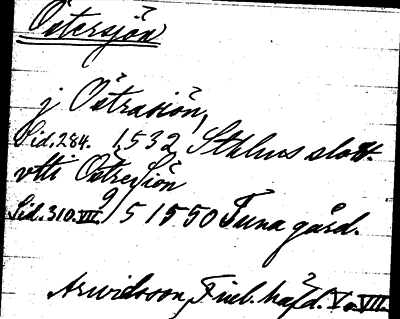 Östersjön
j Östrasiön,
Sid. 284. 1532 Sthlms slott.
vtti Östre Siön
Sid. 310. VII. 9/5 1550 Tuna gård.
Arwidsson, Finl. häfd. V o. VII.